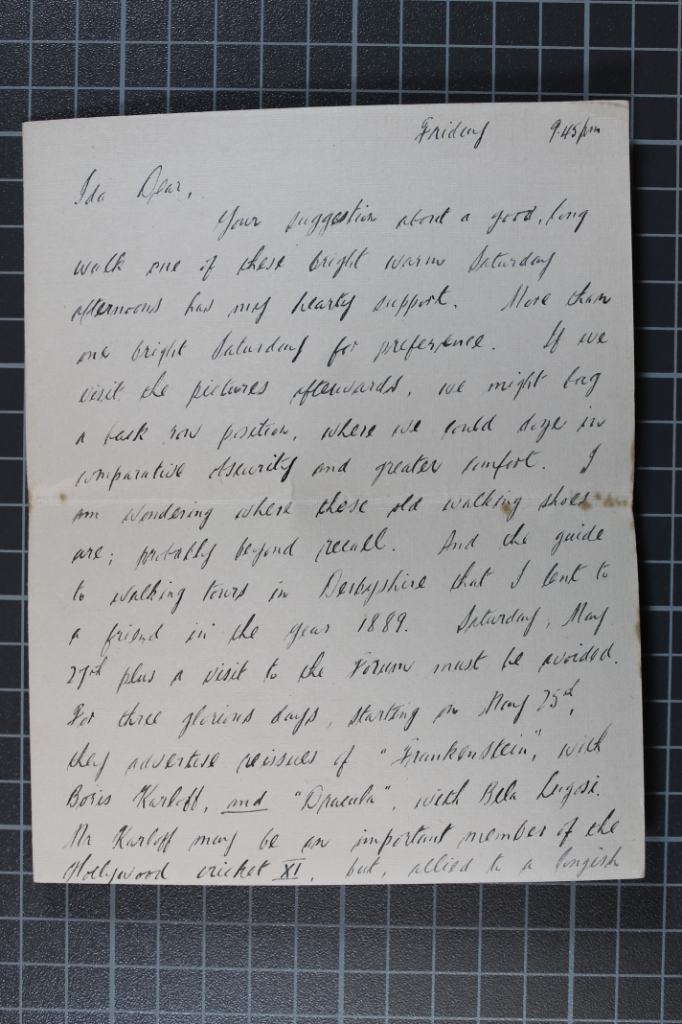 Friday 9.45pm
Ida Dear,
Your suggestion about a good, long
walk one of these bright warm Saturday
afternoons has my hearty support. More than
one bright Saturday for preference. If we
visit the pictures afterwards, we might bag
a back row position, where we could doze in
comparative obscurity and greater comfort. I
am wondering where those old walking shoes
are; probably beyond recall. And the guide
to walking tours in Derbyshire that I lent to
a friend in the year 1889. Saturday, May
27th plus a visit to the Forum must be avoided.
For three glorious days, starting on May 25th,
they advertise reissues of "Frankenstein", with
Boris Karloff, and "Dracula", with Bela Lugosi.
Mr Karloff may be an important member of the
Hollywood cricket XI, but, allied to a longish